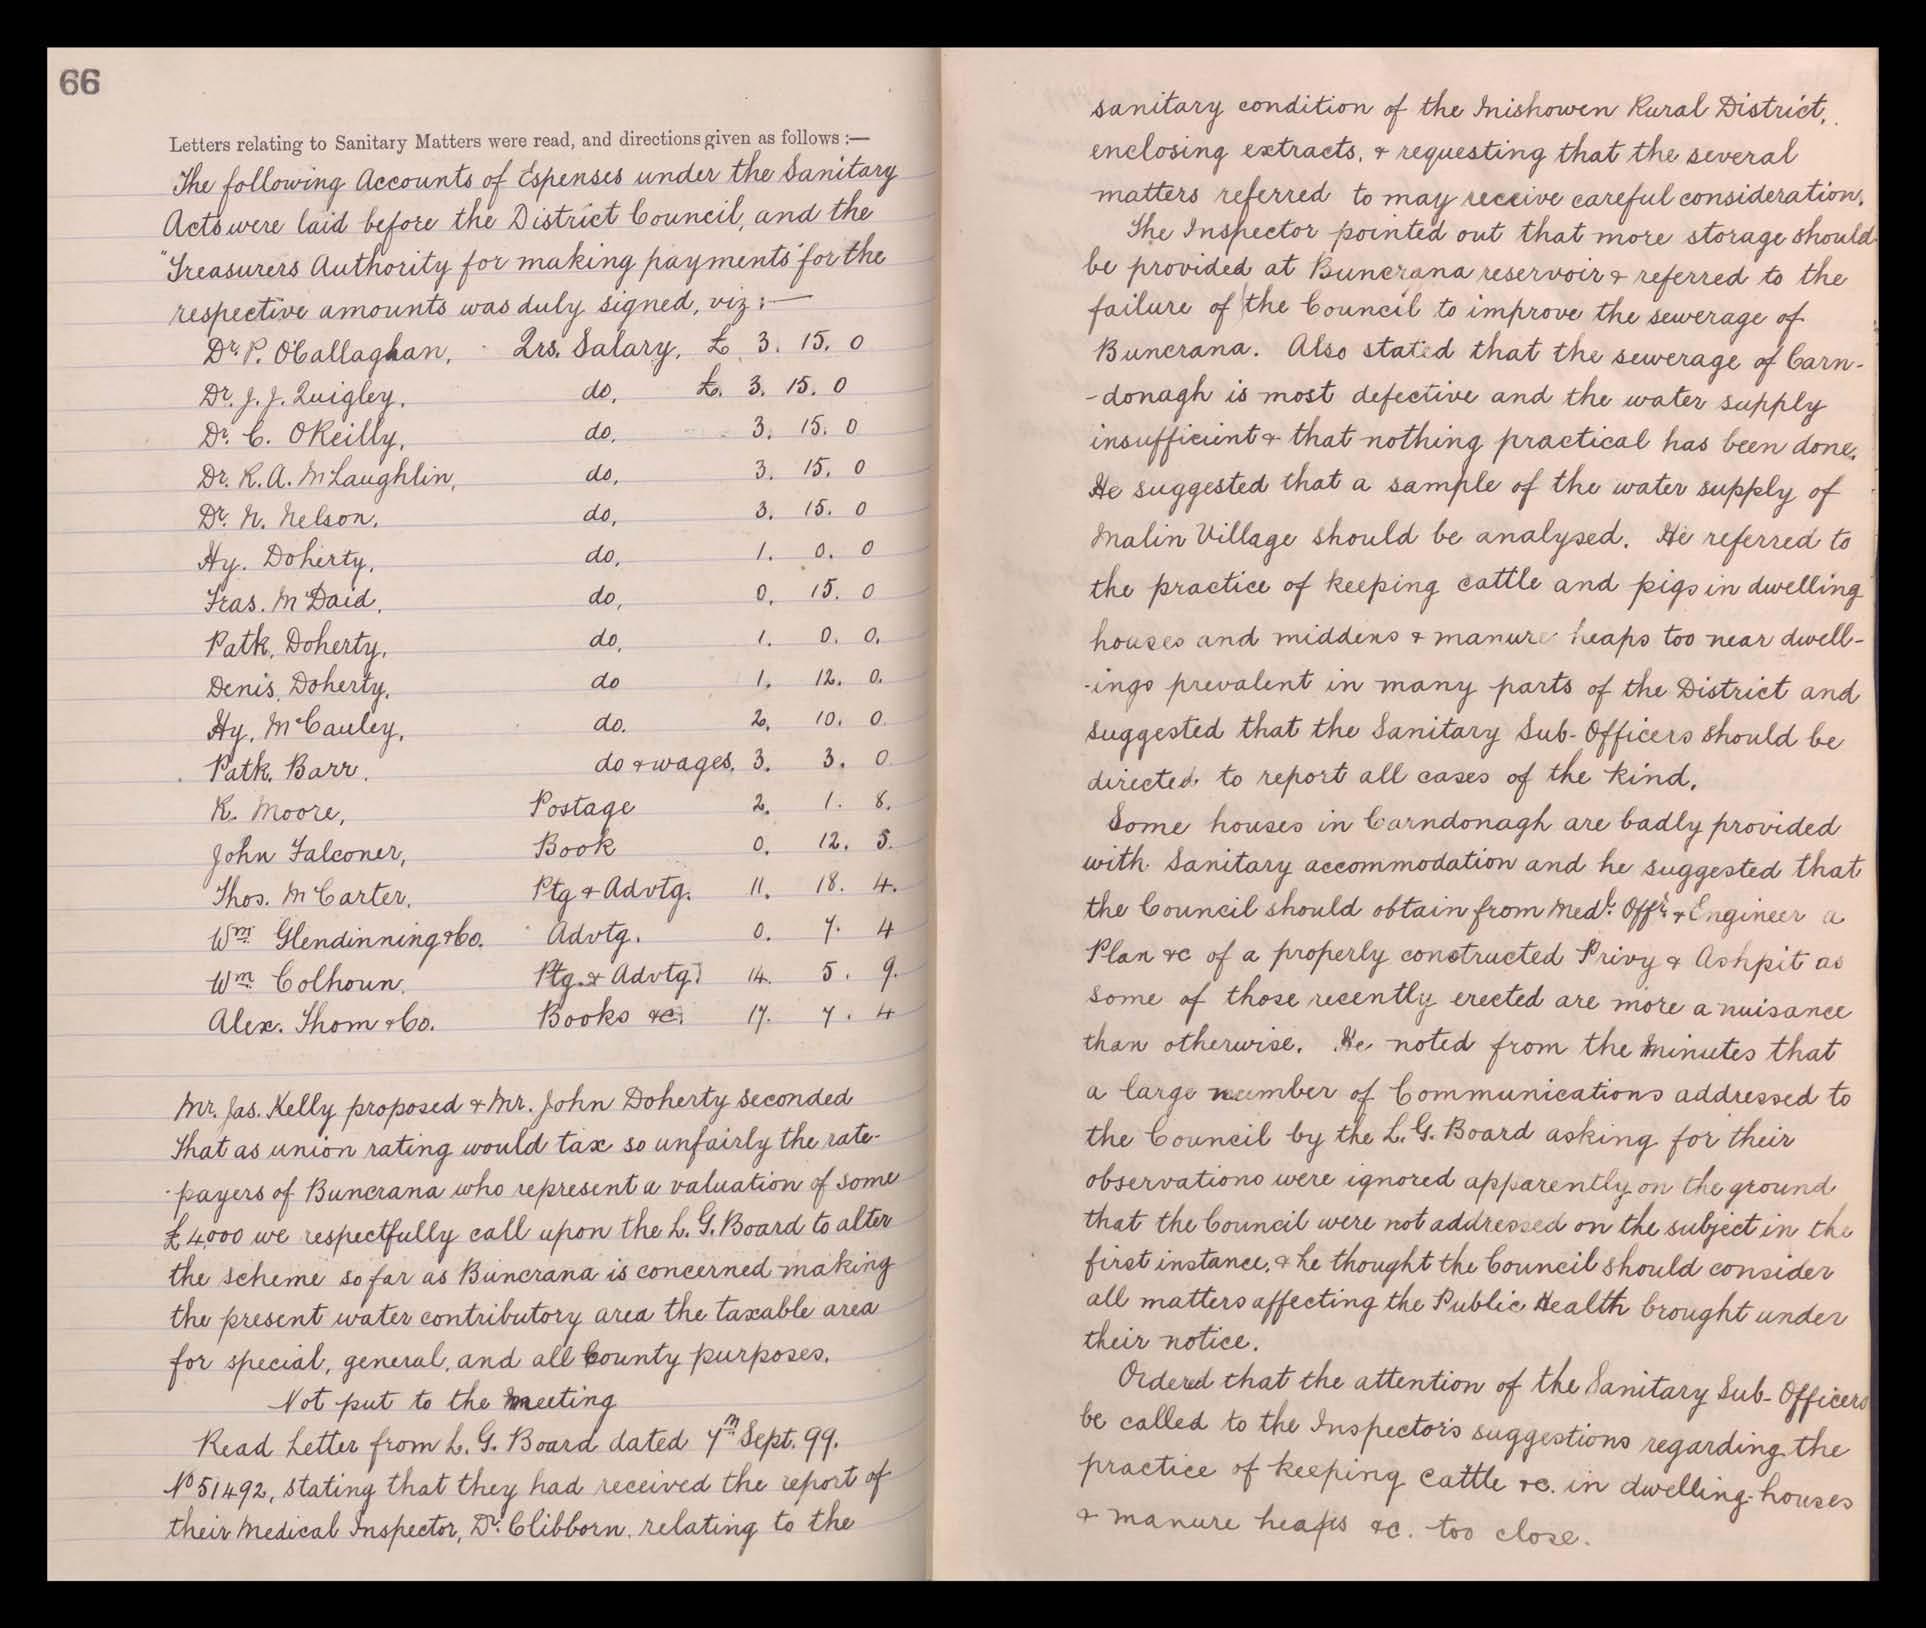 66
Letters relating to Sanitary Matters were read, and directions given as follows :—
The following Accounts of Expenses under the Sanitary
Acts were laid before the District Council, and the
"Treasurers Authority for making payments" for the
respective amounts was duly signed, viz :—
Dr. P. O'Callaghan, Qrs. Salary, £ 3. 15. 0
Dr. J. J. Quigley, do, £. 3. 15. 0
Dr. C. O'Reilly, do, 3. 15. 0
Dr. R. A. McLaughlin, do, 3. 15. 0
Dr. N. Nelson, do, 3. 15. 0
Hy. Doherty, do, 1. 0. 0
Fras. McDaid, do, 0. 15. 0
Patk. Doherty, do, 1. 0. 0.
Denis Doherty, do 1. 12. 0.
Hy. McCauley, do. 2. 10. 0.
Patk. Barr. do & wages, 3. 3. 0
R. Moore, Postage 2. 1. 8.
John Falconer, Book 0. 12. 5.
Thos. McCarter, Ptg & Advtg. 11. 18. 4.
Wm. Glendinning & Co. Advtg. 0. 7. 4
Wm. Colhoun. Ptg. & Advtg. 14. 5. 9.
Alex. Thom & Co. Books &c. 17. 7. 4
Mr. Jas. Kelly proposed & Mr. John Doherty seconded
That as union rating would tax so unfairly the rate-
-payers of Buncrana who represent a valuation of some
£4,000 we respectfully call upon the L. G. Board to alter
the scheme so far as Buncrana is concerned making
the present water contributory area the taxable area
for special, general, and all County purposes.
Not put to the meeting
Read Letter from L. G. Board dated 7th Sept. 99.
No 51492, stating that they had received the report of
their Medical Inspector, Dr. Clibborn, relating to the
sanitary condition of the Inishowen Rural District,
enclosing extracts, & requesting that the several
matters referred to may receive careful consideration.
The Inspector pointed out that more storage should
be provided at Buncrana reservoir & referred to the
failure of the Council to improve the sewerage of
Buncrana. Also stated that the sewerage of Carn-
-donagh is most defective and the water supply
insufficient & that nothing practical has been done.
He suggested that a sample of the water supply of
Malin Village should be analysed. He referred to
the practice of keeping cattle and pigs in dwelling
houses and middens & manure heaps too near dwell-
-ings prevalent in many parts of the District and
suggested that the Sanitary Sub-Officers should be
directed to report all cases of the kind.
Some houses in Carndonagh are badly provided
with Sanitary accommodation and he suggested that
the Council should obtain from Medl. Offr. & Engineer a
Plan &c of a properly constructed Privy & Ashpit as
some of those recently erected are more a nuisance
than otherwise. He noted from the Minutes that
a large number of Communications addressed to
the Council by the L. G. Board asking for their
observations were ignored apparently on the ground
that the Council were not addressed on the subject in the
first instance, & he thought the Council should consider
all matters affecting the Public Health brought under
their notice.
Ordered that the attention of the Sanitary Sub-Officers
be called to the Inspector's suggestions regarding the
practice of keeping cattle &c. in dwelling-houses
& manure heaps &c. too close.